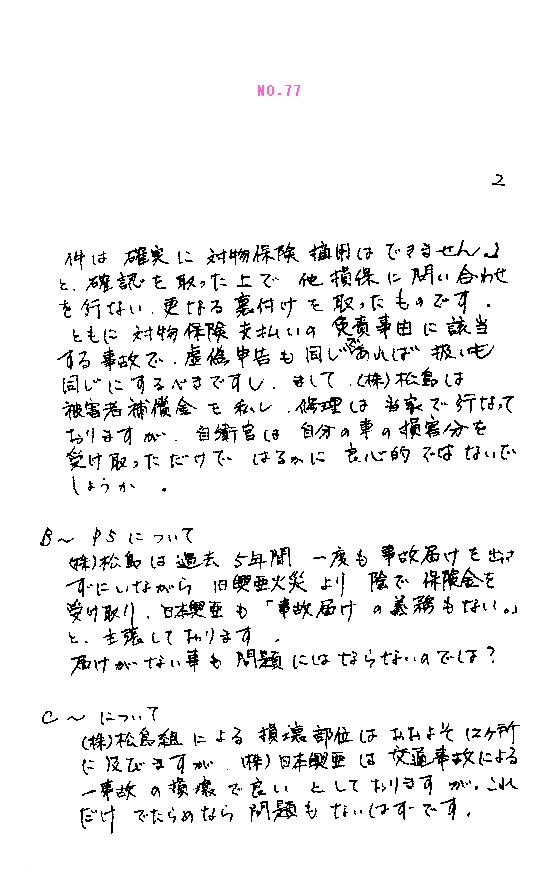 NO.77
2
件は 確実に 対物保険 適用はできません。」
と、確認を取った上で 他損保に問い合わせ
を行ない、更なる裏付けを取ったものです。
ともに 対物保険 支払いの 免責事由に該当
する事故で、虚偽申告も同じであれば 扱いも
同じにするべきですし、まして、(株)松島は
被害者補償金を 、修理は 当家で行なって
おりますが、自衛官は 自分の車の損害分を
受け取っただけで はるかに 良心的ではないで
しょうか 。
B~ PSについて
(株)松島は過去 5年間 一度も 事故届けを出さ
ずにいながら 旧興亜火災より 陰で 保険金を
受け取り、日本興亜も「事故届け の義務もない。」
と、主張しております。
届けがない事も 問題にはならないのでは?
C ~ について
(株)松島組による 損壊部位は おおよそ 12ヶ所
に及びますが、(株)日本興亜は 交通事故による
一事故の損壊で良い としておりますが、これ
だけ でたらめなら 問題も ないはずです。